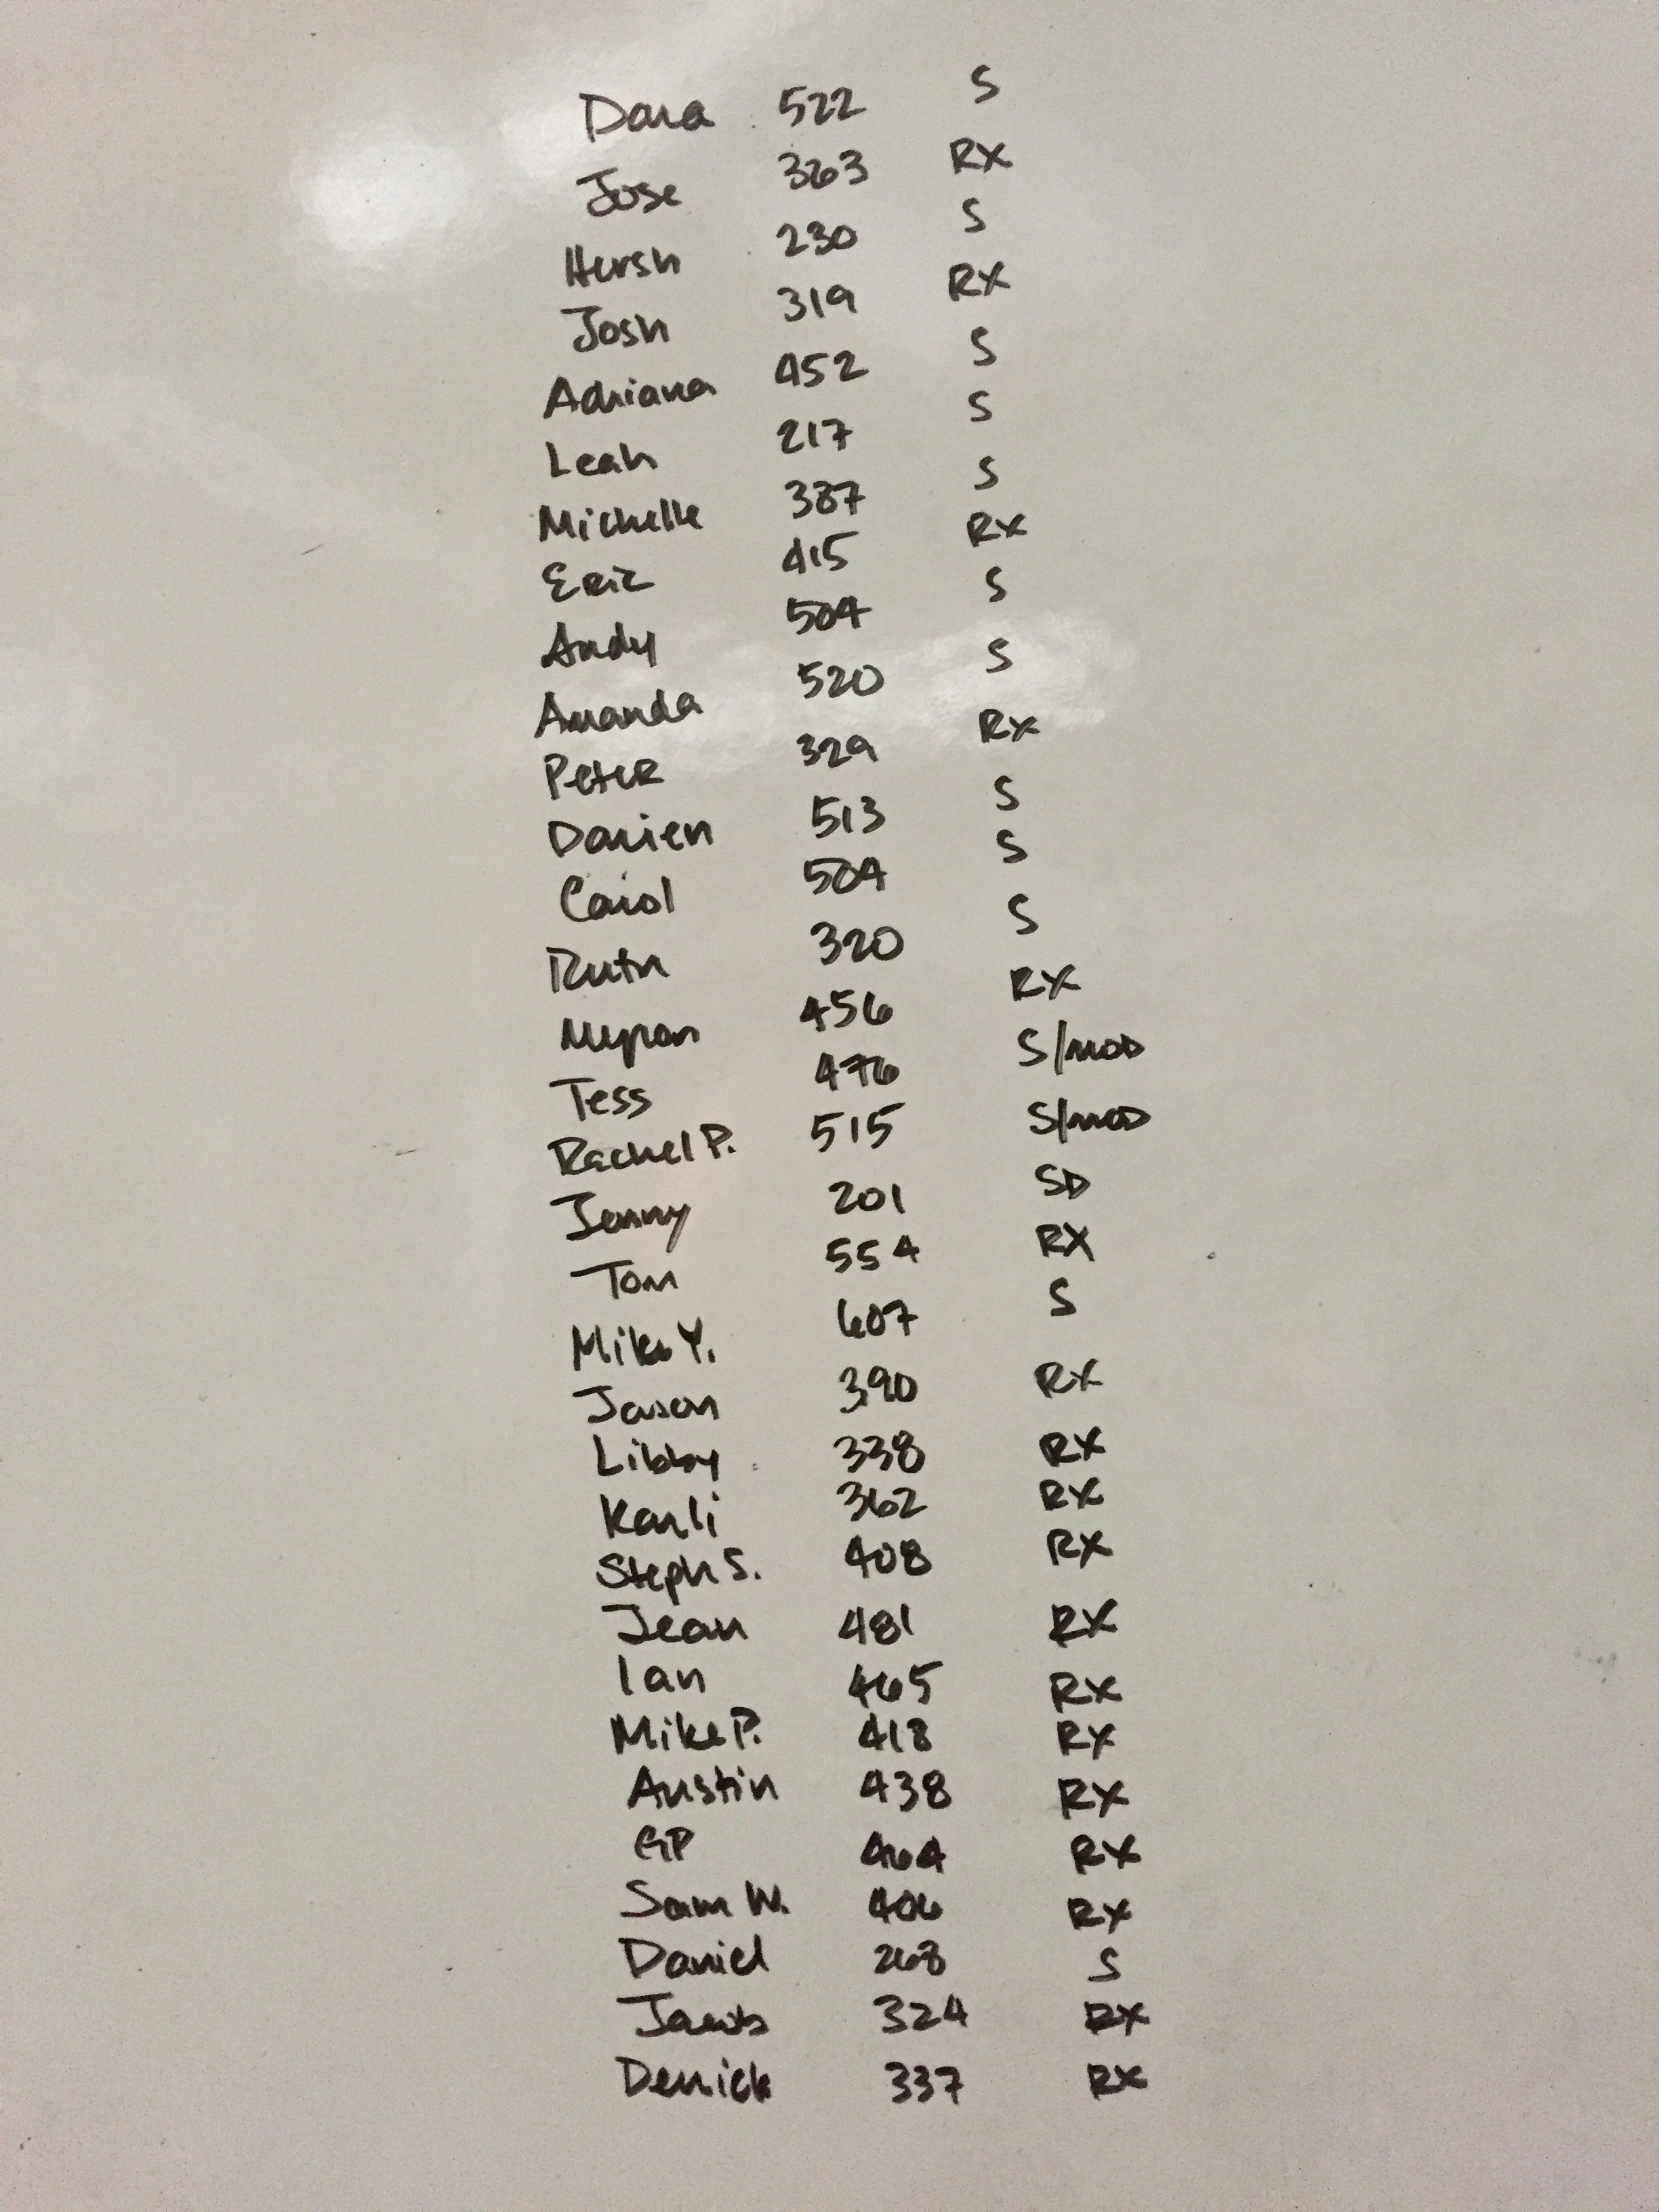 Dara 522 S
Jose 363 RX
Hersh 230 S
Josh 319 RX
Adriana 452 S
Leah 217 S
Michelle 387 S
Eric 415 RX
Andy 504 S
Amanda 520 S
Peter 329 RX
Darien 513 S
Carol 504 S
Ruth 320 S
Myron 456 RX
Tess 476 S/MOD
Rachel P. 515 S/MOD
Jenny 201 SD
Tom 554 RX
Mike Y. 607 S
Jason 390 RX
Libby 338 RX
Karli 362 RX
Steph S. 408 RX
Jean 481 RX
Ian 465 RX
Mike P. 418 RX
Austin 438 RX
GP 464 RX
Sam W. 406 RX
Daniel 268 S
Jacob 324 RX
Derrick 337 RX